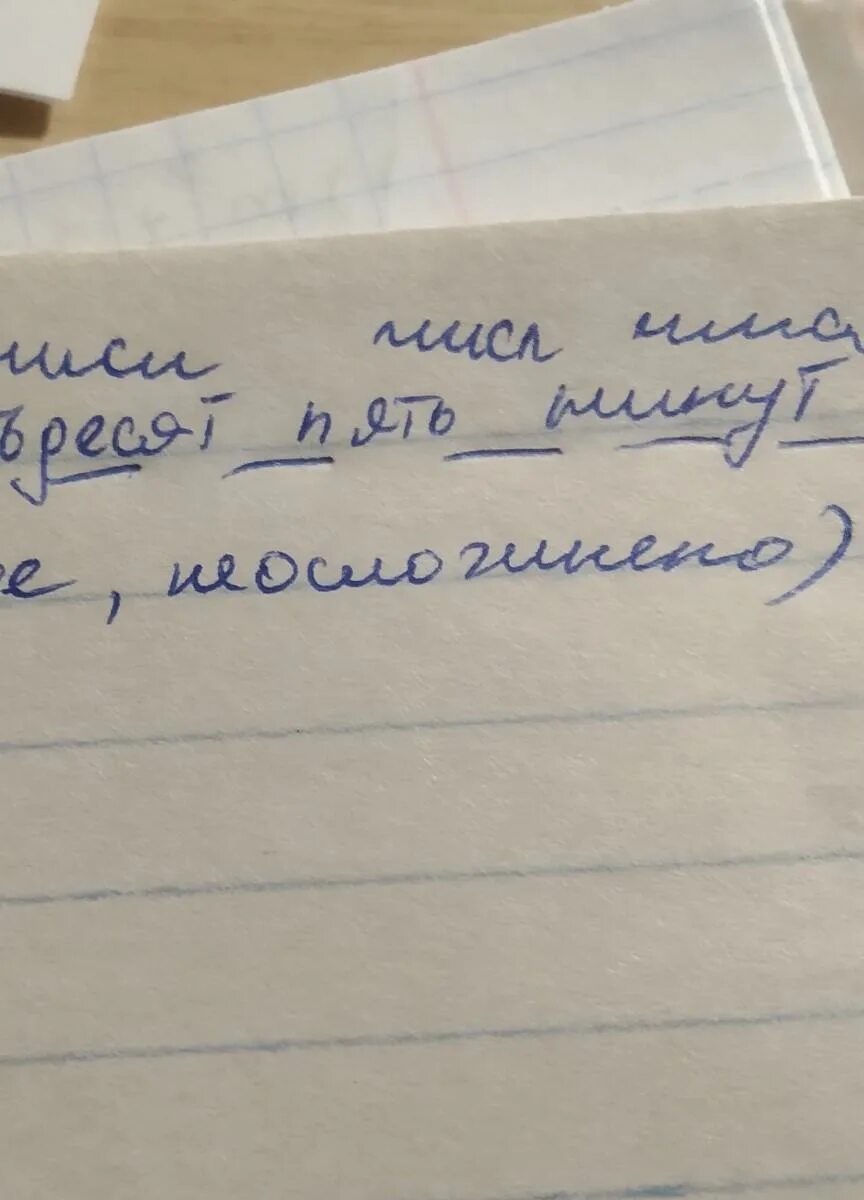 числ
ьдесят пять минут
е, неосложнено)